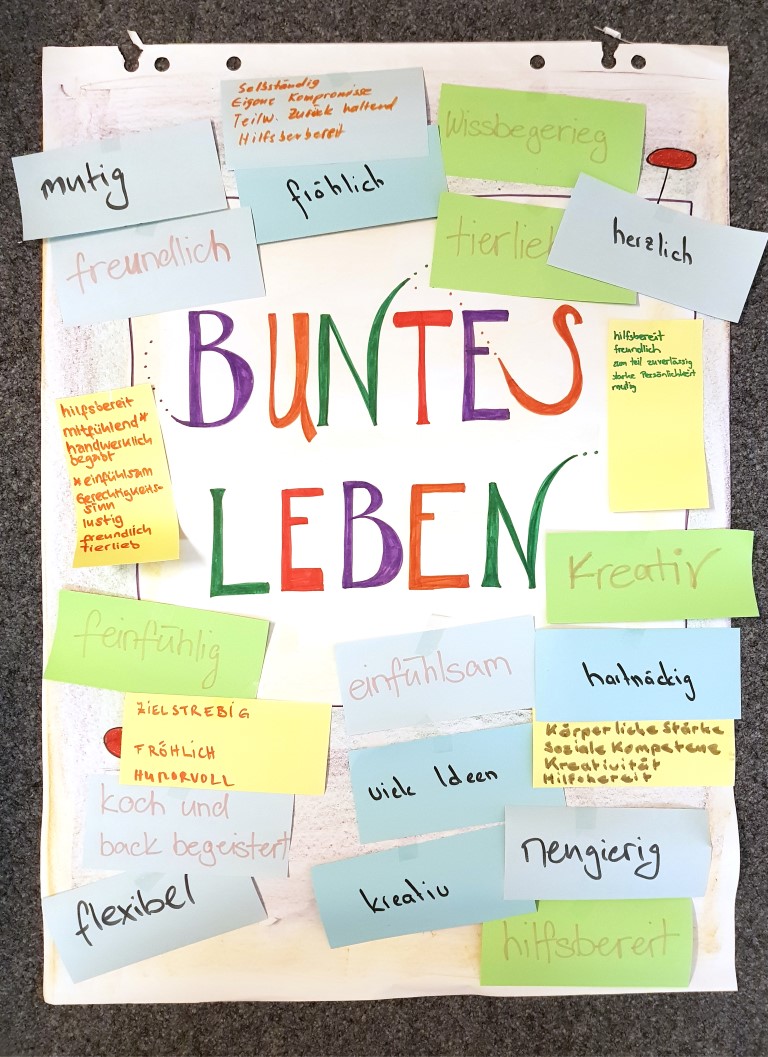 Selbständig
Eigene Kompromisse
Teilw. Zurück haltend
Hilfsberbereit
Wissbegerieg
mutig
fröhlich
freundlich
tierlieb
herzlich
BUNTES
LEBEN
hilfsbereit
freundlich
zum teil zuverlässig
starke Persönlichkeit
mutig
hilfsbereit
mitfühlend*
handwerklich
begabt
* einfühlsam
Gerechtigkeits-
sinn
lustig
freundlich
tierlieb
Kreativ
feinfühlig
einfühlsam
hartnäckig
ZIELSTREBIG
FRÖHLICH
HUMORVOLL
Körperliche Stärke
Soziale Kompetenz
Kreativität
Hilfsbereit
viele Ideen
koch und
back begeistert
neugierig
flexibel
kreativ
hilfsbereit